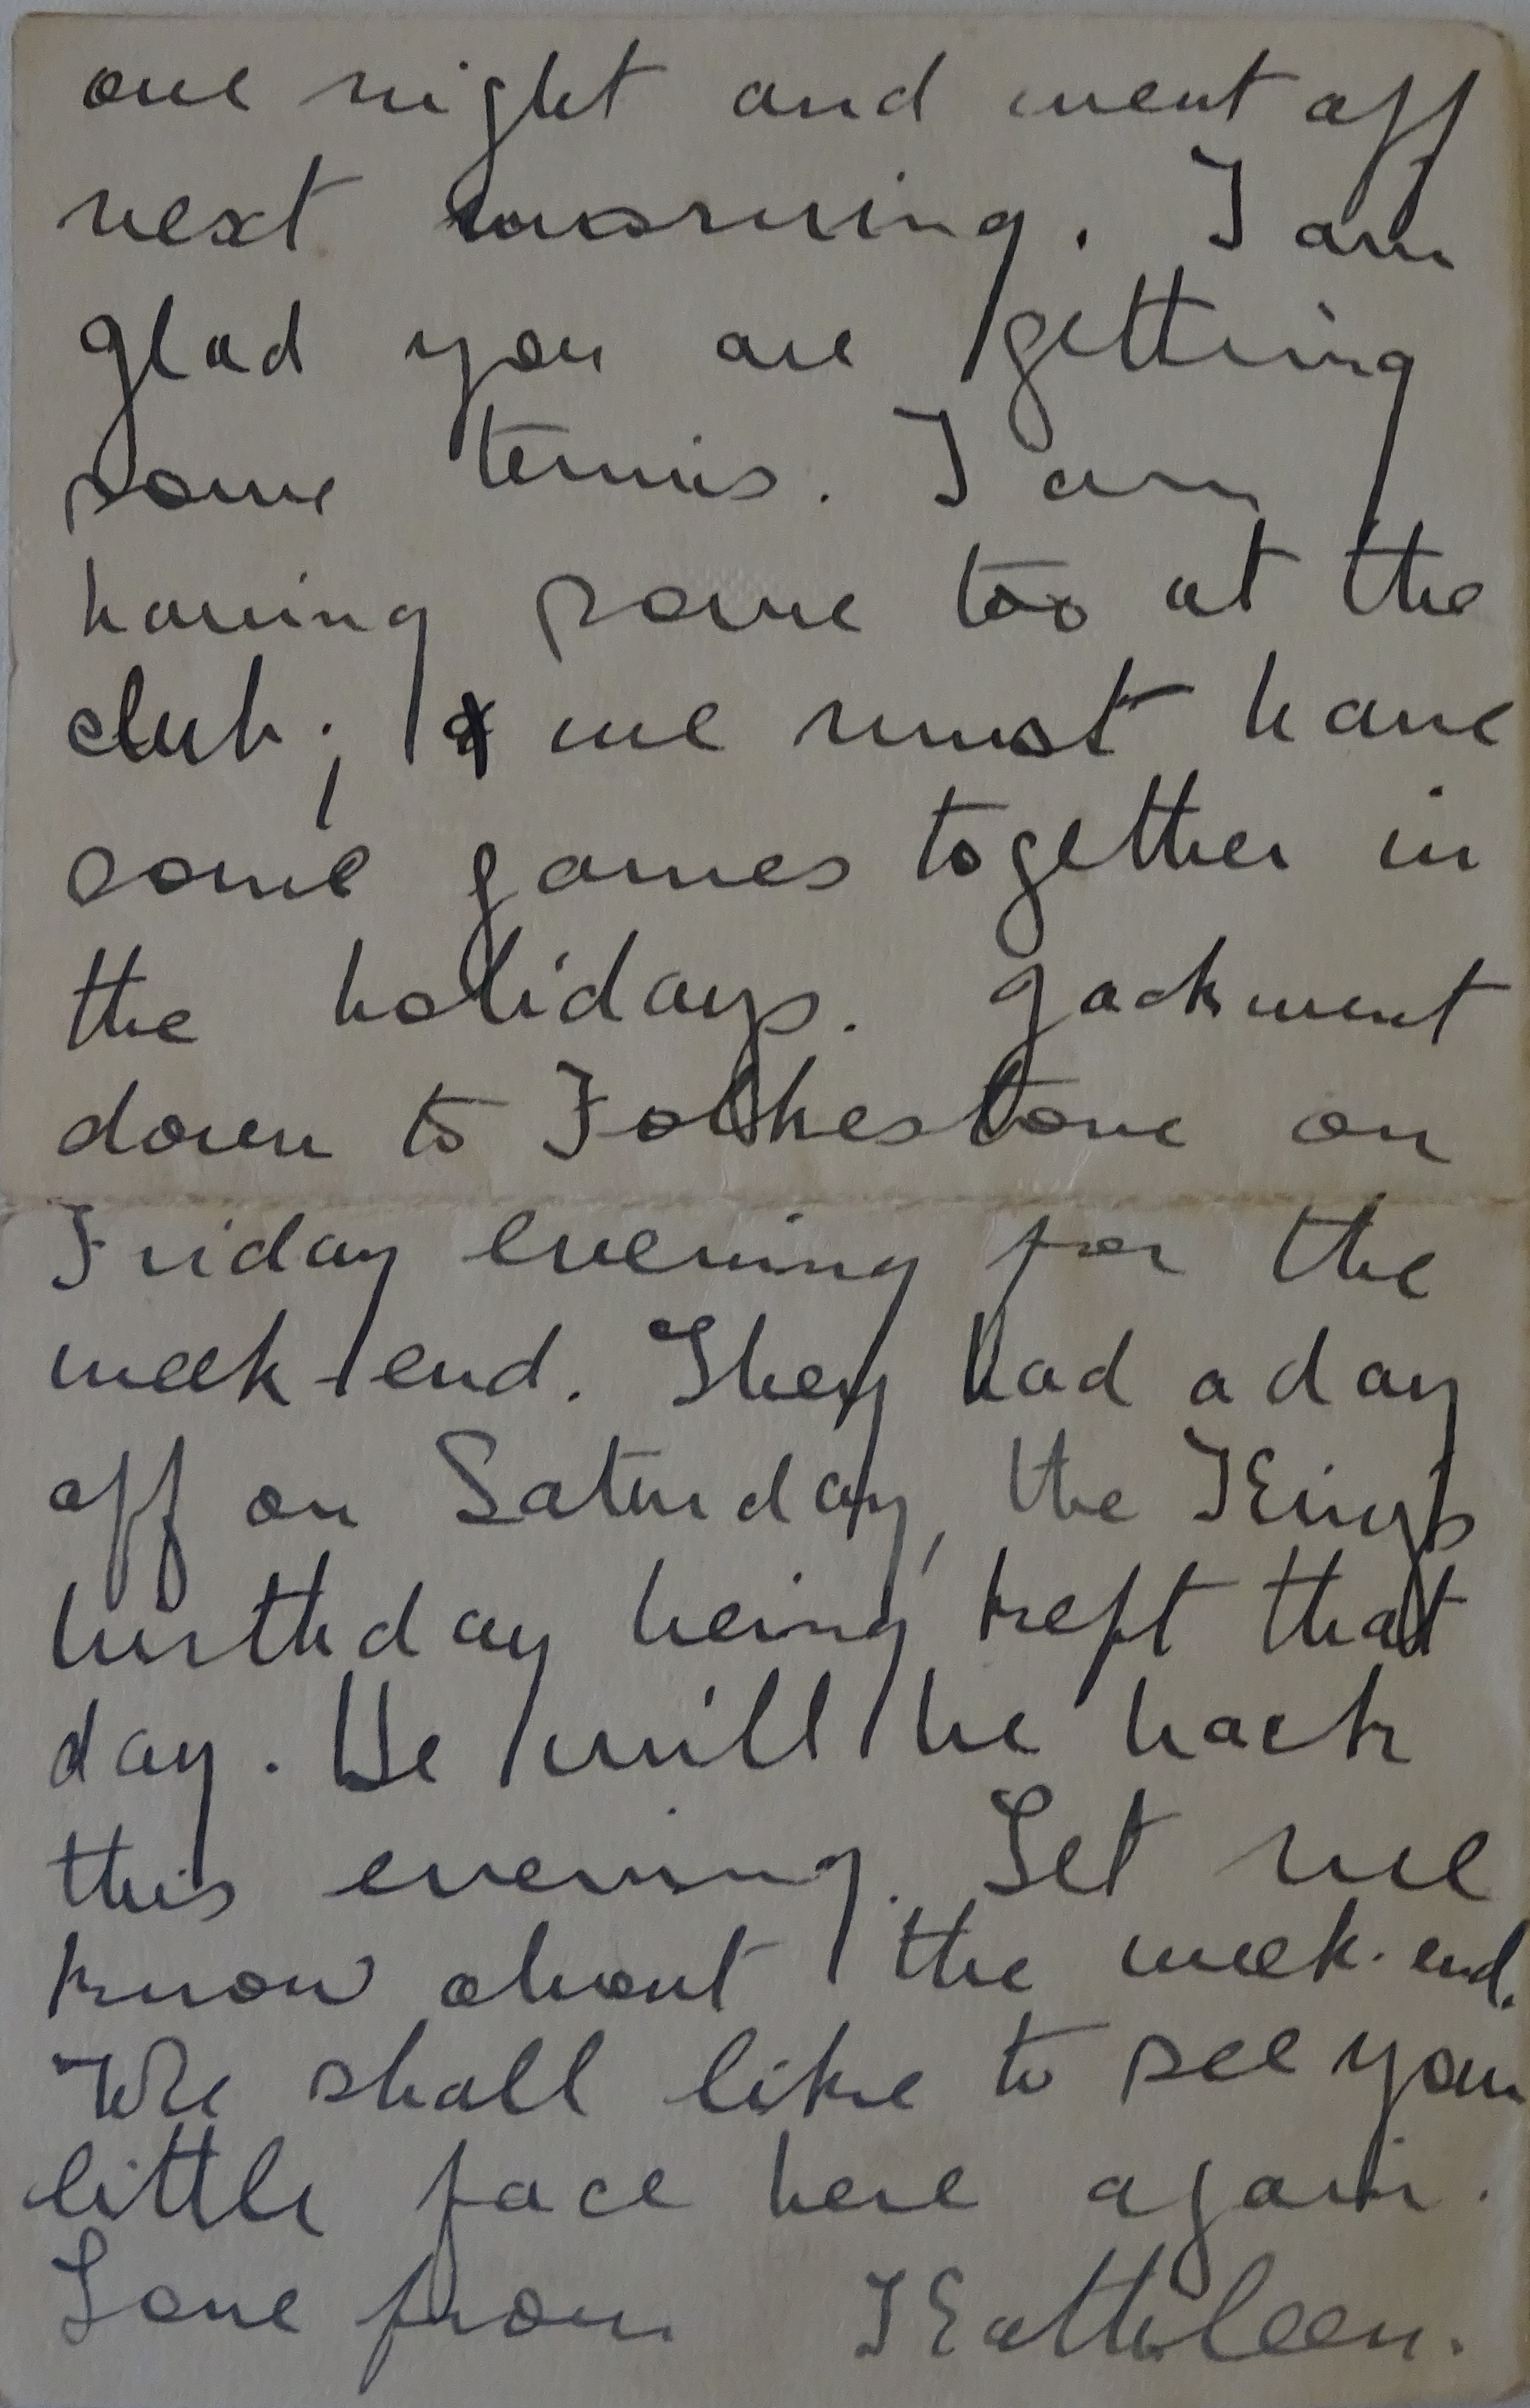 one night and went off
next morning. I am
glad you are getting
some tennis. I am
having some too at the
club; & we must have
some games together in
the holidays. Jack went
down to Folkestone on
Friday evening for the
week-end. They had a day
off on Saturday, the King's
birthday being kept that
day. He will be back
this evening. Let me
know about the week-end.
We shall like to see your
little face here again.
Love from Kathleen.